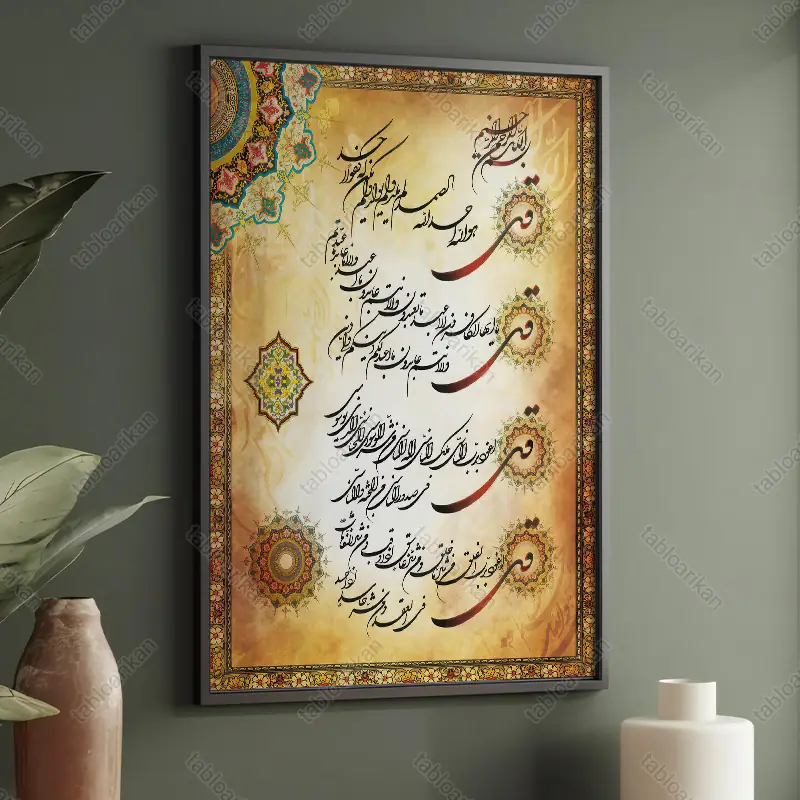 بسم الله الرحمن الرحیم
قل هو الله احد الله الصمد لم یلد ولم یولد ولم یکن له کفوا احد
قل یا ایها الکافرون لا اعبد ما تعبدون ولا انتم عابدون ما اعبد ولا انا عابد ما عبدتم
ولا انتم عابدون ما اعبد لکم دینکم ولی دین
قل اعوذ برب الناس ملک الناس اله الناس من شر الوسواس الخناس الذی یوسوس
فی صدور الناس من الجنة والناس
قل اعوذ برب الفلق من شر ما خلق ومن شر غاسق اذا وقب ومن شر النفاثات
فی العقد ومن شر حاسد اذا حسد
tabloarkan